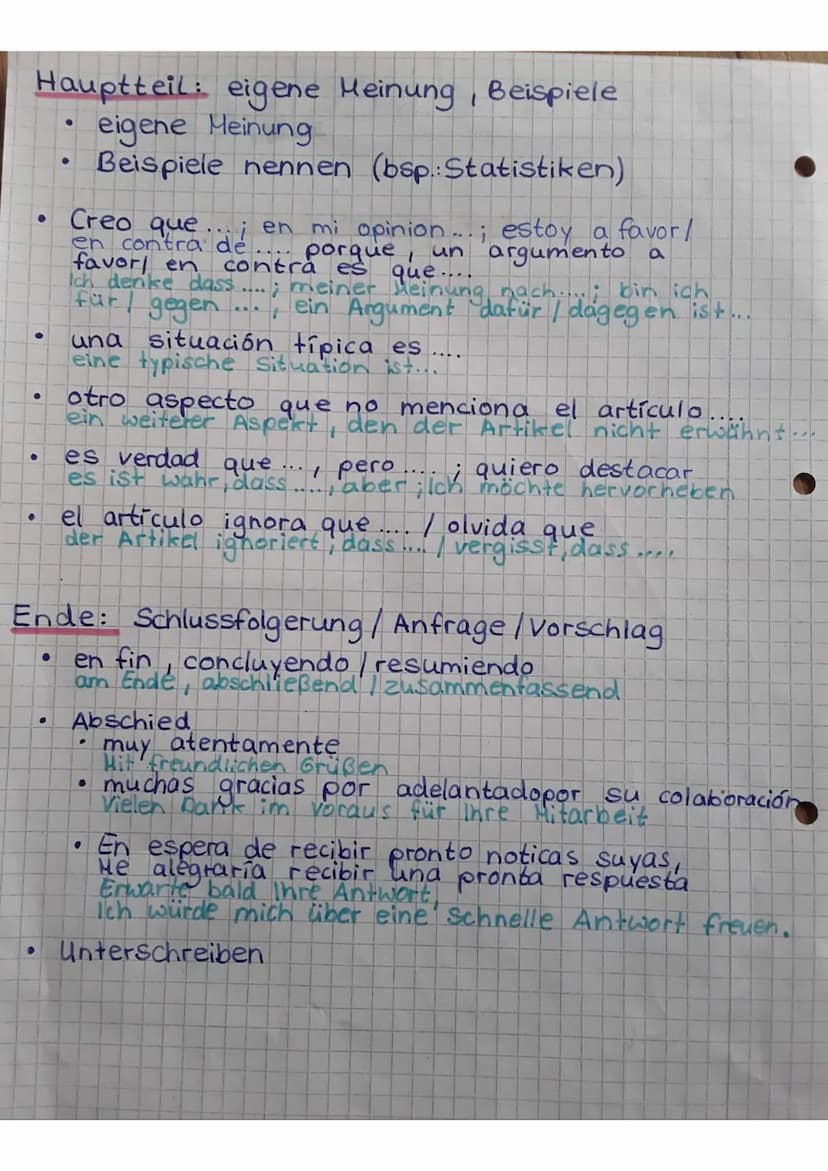 Hauptteil: eigene Meinung, Beispiele
• eigene Meinung
• Beispiele nennen (bsp.: Statistiken)
• Creo que...; en mi opinion...; estoy a favor/
en contra de .... porque, un argumento a
favor/ en contra es que....
Ich denke dass ....; meiner Meinung nach....; bin ich
für/ gegen ..., ein Argument dafür / dagegen ist...
• una situación típica es ....
eine typische Situation ist...
• otro aspecto que no menciona el artículo....
ein weiterer Aspekt, den der Artikel nicht erwähnt...
• es verdad que ..., pero ....; quiero destacar
es ist wahr, dass ...., aber; Ich möchte hervorheben
• el artículo ignora que .... / olvida que
der Artikel ignoriert, dass .... / vergisst, dass ....
Ende: Schlussfolgerung / Anfrage / Vorschlag
• en fin, concluyendo / resumiendo
am Ende, abschließend / zusammenfassend
• Abschied
• muy atentamente
Mit freundlichen Grüßen
• muchas gracias por adelantadopor su colaboración
Vielen Dank im voraus für Ihre Mitarbeit
• En espera de recibir pronto noticas suyas,
Me alegraría recibir una pronta respuesta
Erwarte bald Ihre Antwort,
Ich würde mich über eine schnelle Antwort freuen.
• Unterschreiben